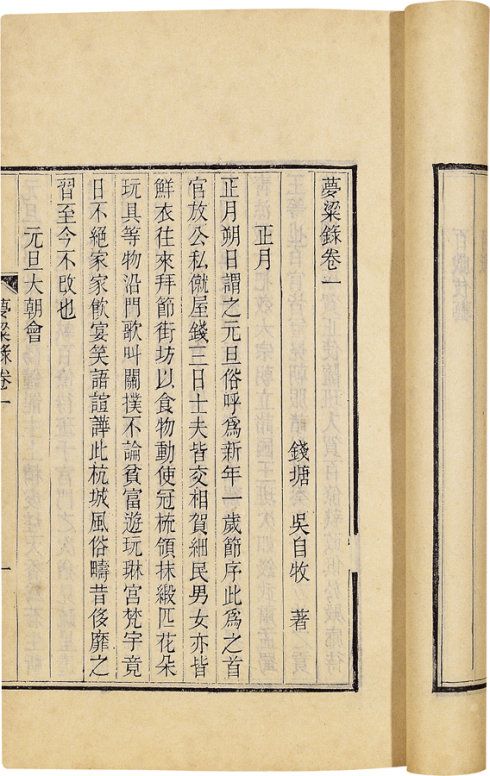 夢粱錄卷一
錢塘 吳自牧 著
正月
正月朔日謂之元旦俗呼爲新年一歲節序此爲之首
官放公私僦屋錢三日士夫皆交相賀細民男女亦皆
鮮衣往來拜節街坊以食物動使冠梳領抹緞匹花朵
玩具等物沿門歌叫關撲不論貧富遊玩琳宮梵宇竟
日不絕家家飲宴笑語諠譁此杭城風俗疇昔侈靡之
習至今不改也
元旦大朝會
夢粱錄卷一
一